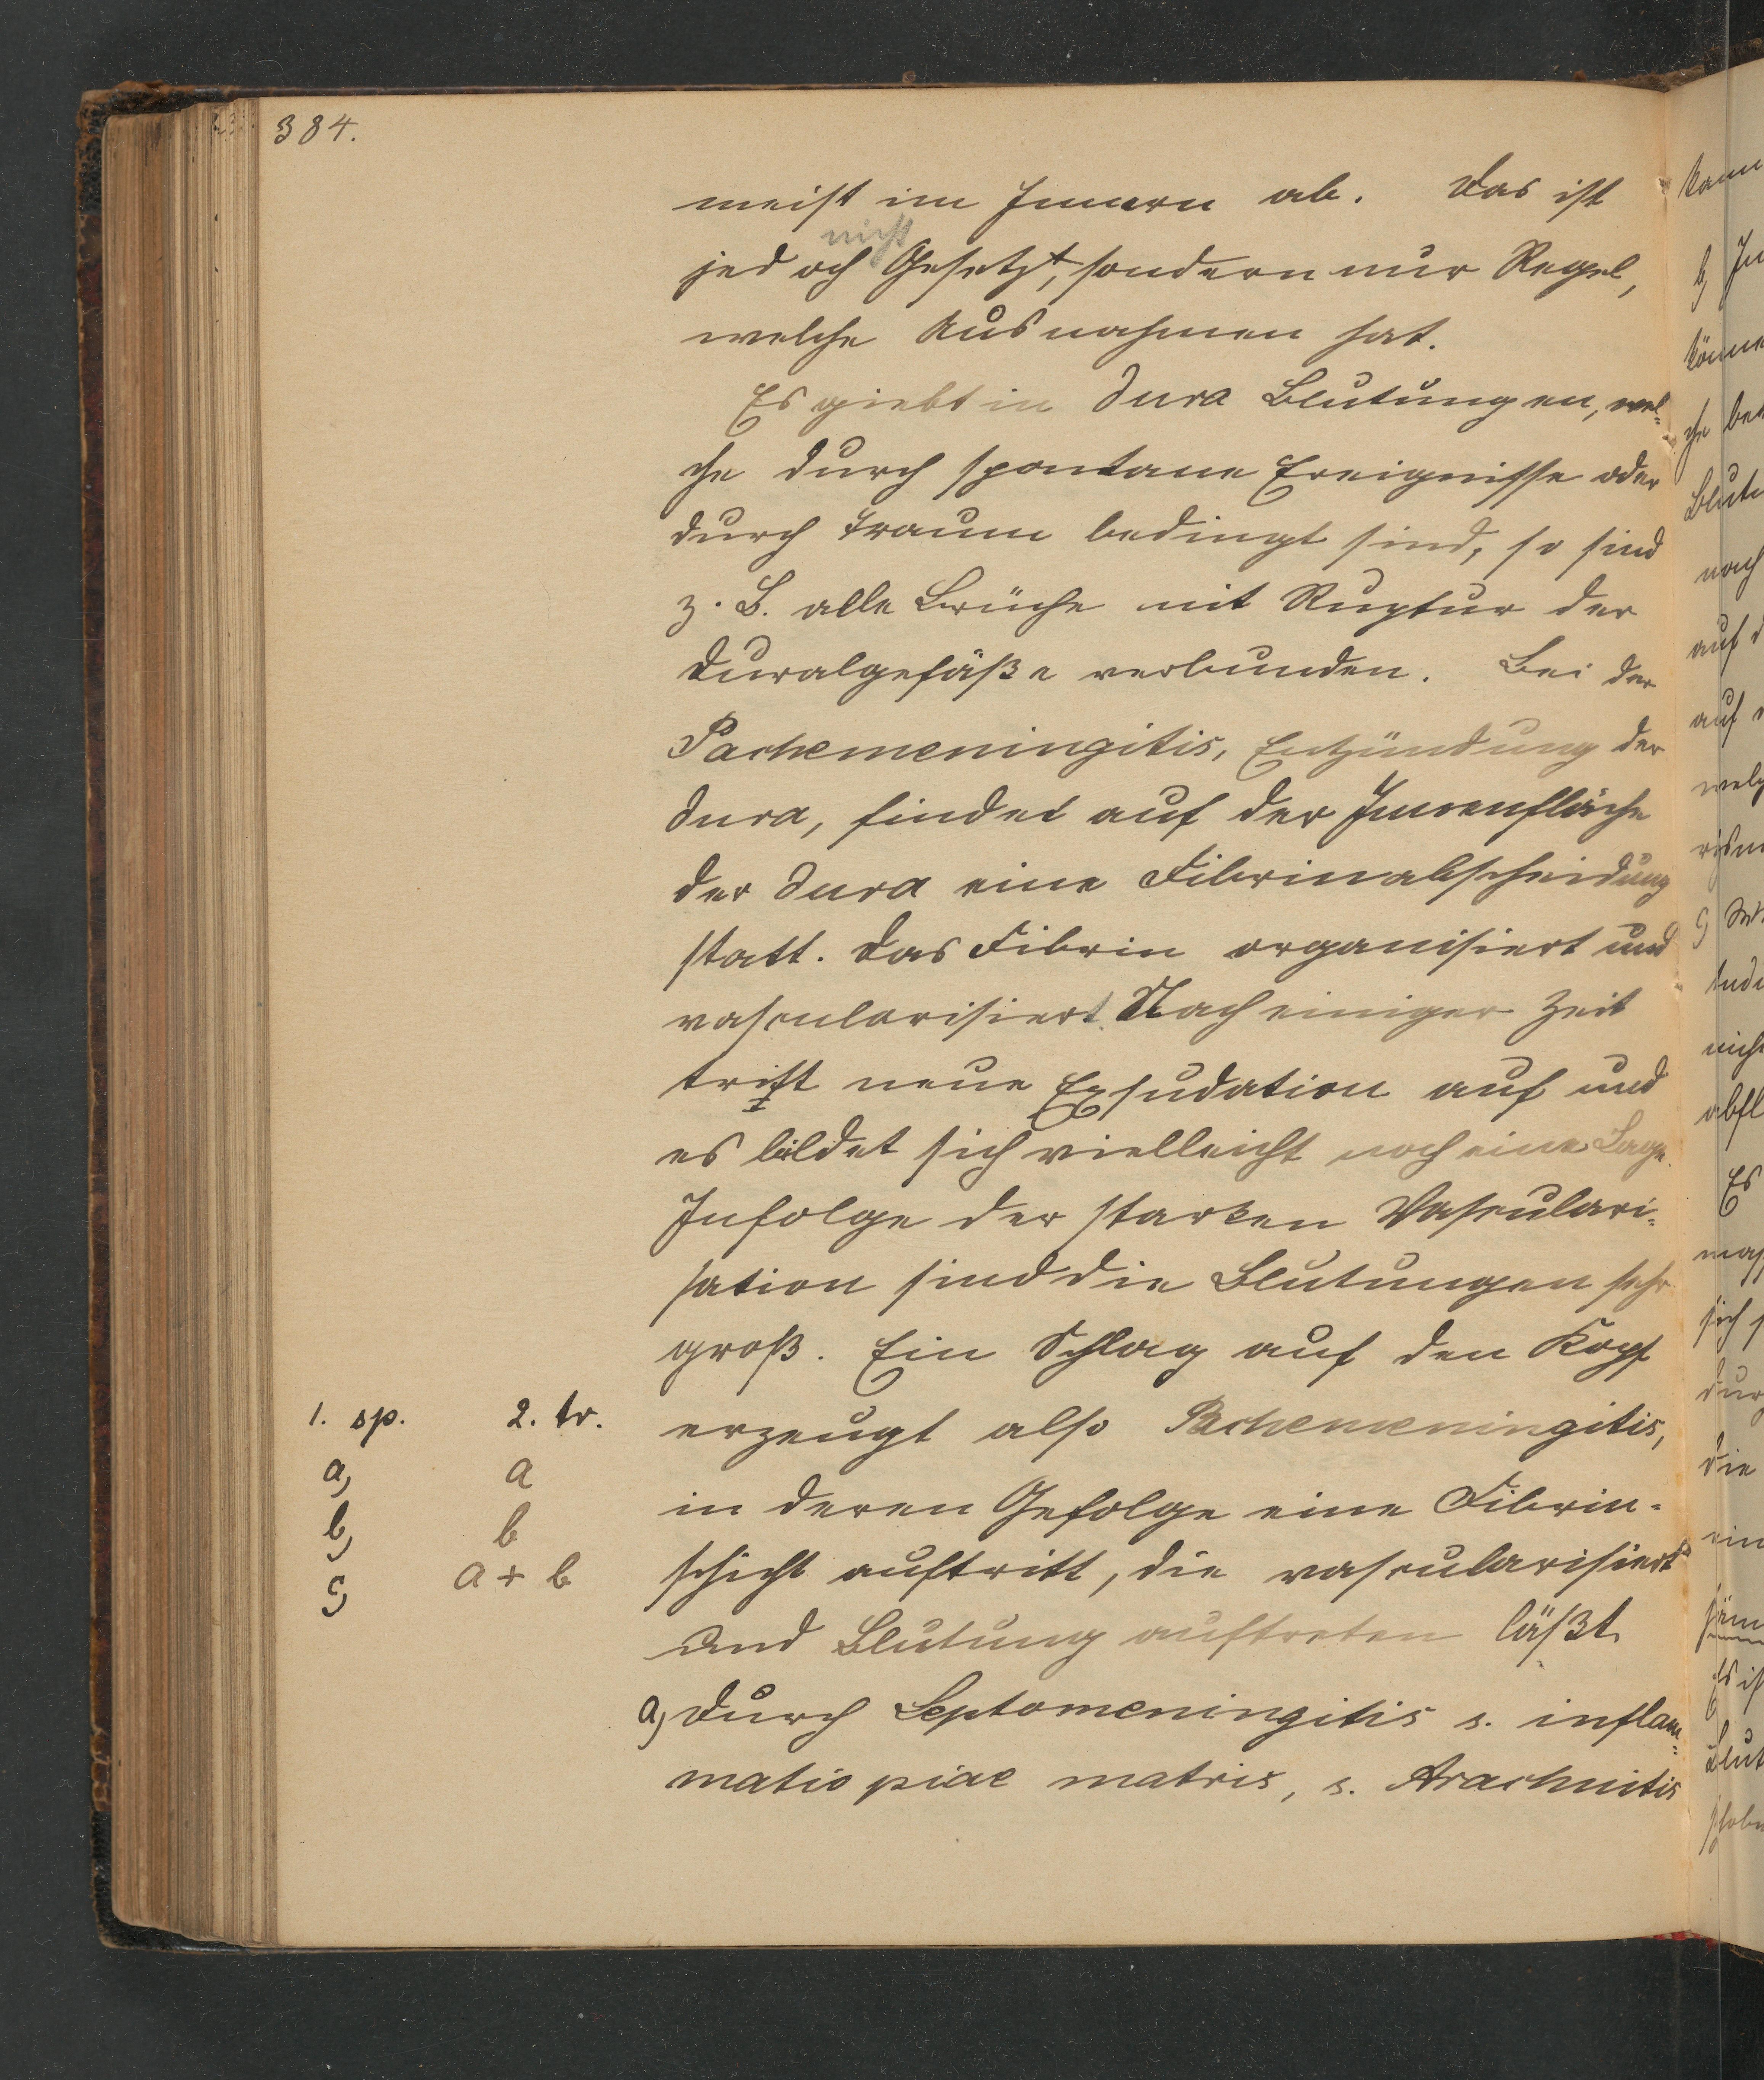 384.
meist im Innern ab. Das ist
nicht
jedoch Gesetzt, sondern nur Regel,
welche Ausnahmen hat.
Es giebt in Dura Blutungen, wel-
che durch spontane Ereignisse oder
durch Traum bedingt sind, so sind
z. B. alle Brüche mit Ruptur der
Duralgefäße verbunden. Bei der
Pachemeningitis, Entzündung der
Dura, findet auf der Innenfläche
der Dura eine Fibrinabscheidung
statt. Das Fibrin organisiert und
vascularisiert. Nach einiger Zeit
tritt neue Exsudation auf und
es bildet sich vielleicht noch eine Lage.
Infolge der starken Vasculari-
sation sind die Blutungen sehr
groß. Ein Schlag auf den Kopf
erzeugt also Pachemeningitis,
in deren Gefolge eine Fibrin-
schicht auftritt, die vascularisiert
und Blutung auftreten läßt.
a) Durch Leptomeningitis s. inflam-
matio piae matris, s. Arachnitis
1. sp. 2. tr.
a) a
b) b
c) a + b